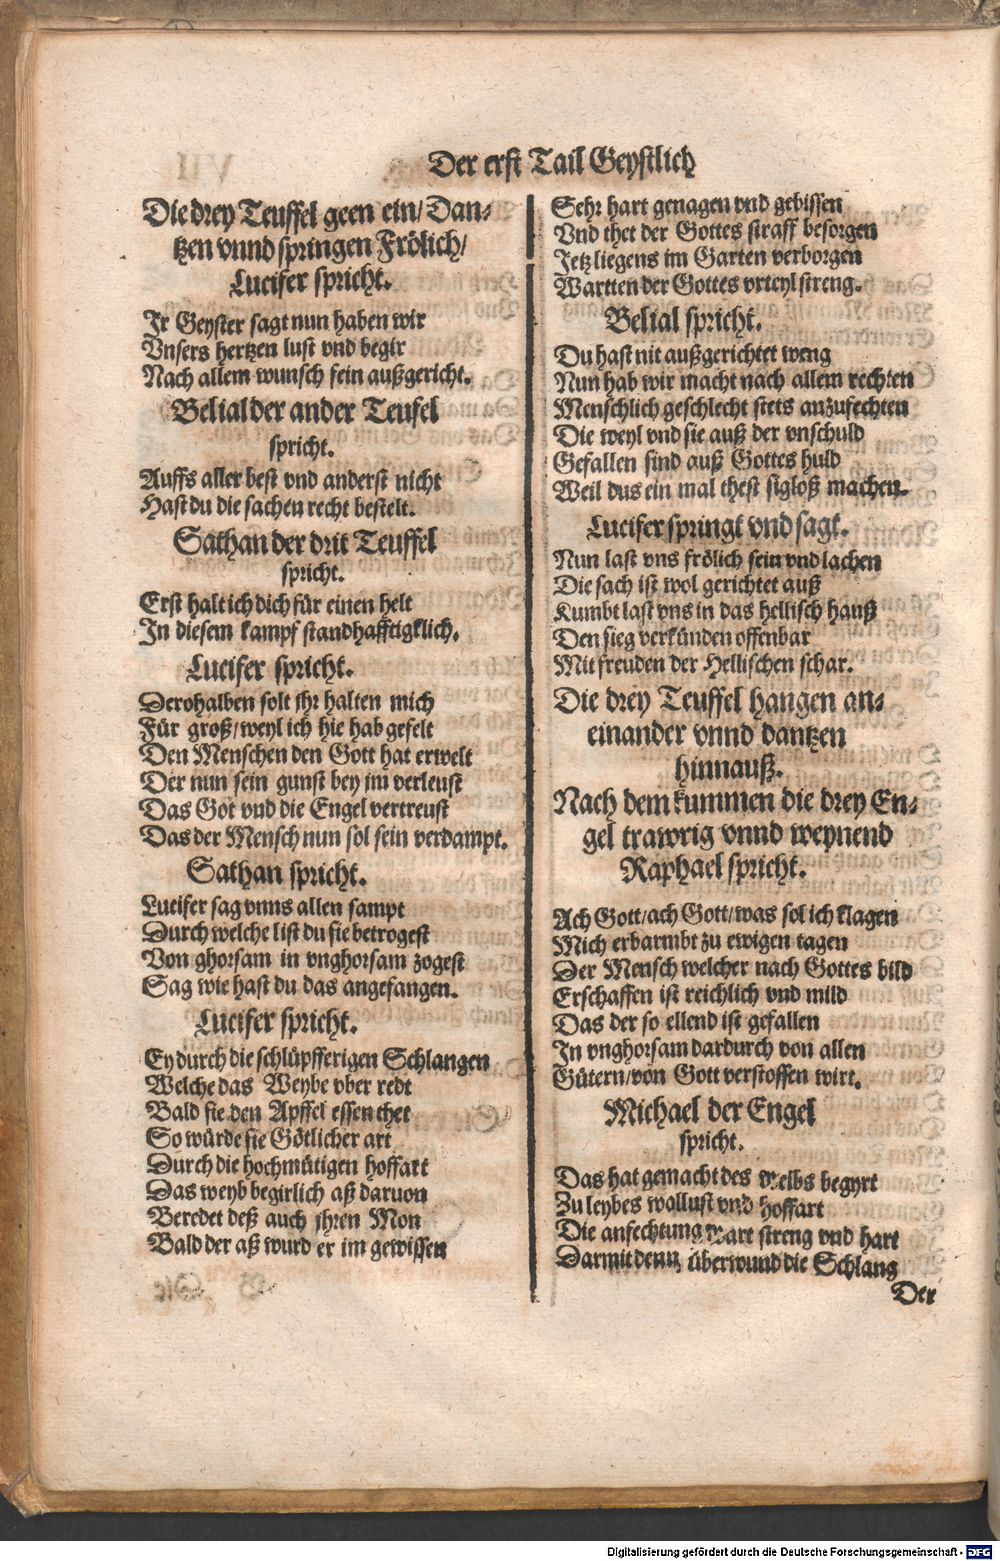 Der erst Tail Geystlich
Die drey Teuffel geen ein/ Dan-
tzen vnnd springen Frölich/
Lucifer spricht.
Ir Geyster sagt nun haben wir
Vnsers hertzen lust vnd begir
Nach allem wunsch fein außgericht.
Belial der ander Teufel
spricht.
Auffs aller best vnd anderst nicht
Hast du die sachen recht bestelt.
Sathan der drit Teuffel
spricht.
Erst halt ich dich für einen helt
In diesem kampf standhafftigklich.
Lucifer spricht.
Derohalben solt ihr halten mich
Für groß/ weyl ich hie hab gefelt
Den Menschen den Gott hat erwelt
Der nun sein gunst bey jm verleust
Das Got vnd die Engel vertreust
Das der Mensch nun sol sein verdampt.
Sathan spricht.
Lucifer sag vnns allen sampt
Durch welche list du sie betrogest
Von ghorsam in vnghorsam zogest
Sag wie hast du das angefangen.
Lucifer spricht.
Ey durch die schlüpfferigen Schlangen
Welche das Weybe vber redt
Bald sie den Apffel essen thet
So würde sie Götlicher art
Durch die hochmütigen hoffart
Das weyb begirlich aß daruon
Beredet deß auch jhren Mon
Bald der aß wurd er im gewissen
Sehr hart genagen vnd gebissen
Vnd thet der Gottes straff besorgen
Jetz liegens im Garten verborgen
Wartten der Gottes vrteyl streng.
Belial spricht.
Du hast nit außgerichtet weng
Nun hab wir macht nach allem rechten
Menschlich geschlecht stets anzufechten
Die weyl vnd sie auß der vnschuld
Gefallen sind auß Gottes huld
Weil dus ein mal thest sigloß machen.
Lucifer springt vnd sagt.
Nun last vns frölich sein vnd lachen
Die sach ist wol gerichtet auß
Kumbt last vns in das hellisch hauß
Den sieg verkünden offenbar
Mit freuden der Hellischen schar.
Die drey Teuffel hangen an-
einander vnnd dantzen
hinnauß.
Nach dem kummen die drey En-
gel trawrig vnnd weynend
Raphael spricht.
Ach Gott/ ach Gott/ was sol ich klagen
Mich erbarmbt zu ewigen tagen
Der Mensch welcher nach Gottes bild
Erschaffen ist reichlich vnd mild
Das der so ellend ist gefallen
In vnghorsam dardurch von allen
Gütern/ von Gott verstossen wirt.
Michael der Engel
spricht.
Das hat gemacht des weibs begyrt
Zu leybes wollust vnd hoffart
Die anfechtung wart streng vnd hart
Darmit denn überwund die Schlang
Der
Digitalisierung gefördert durch die Deutsche Forschungsgemeinschaft - DFG